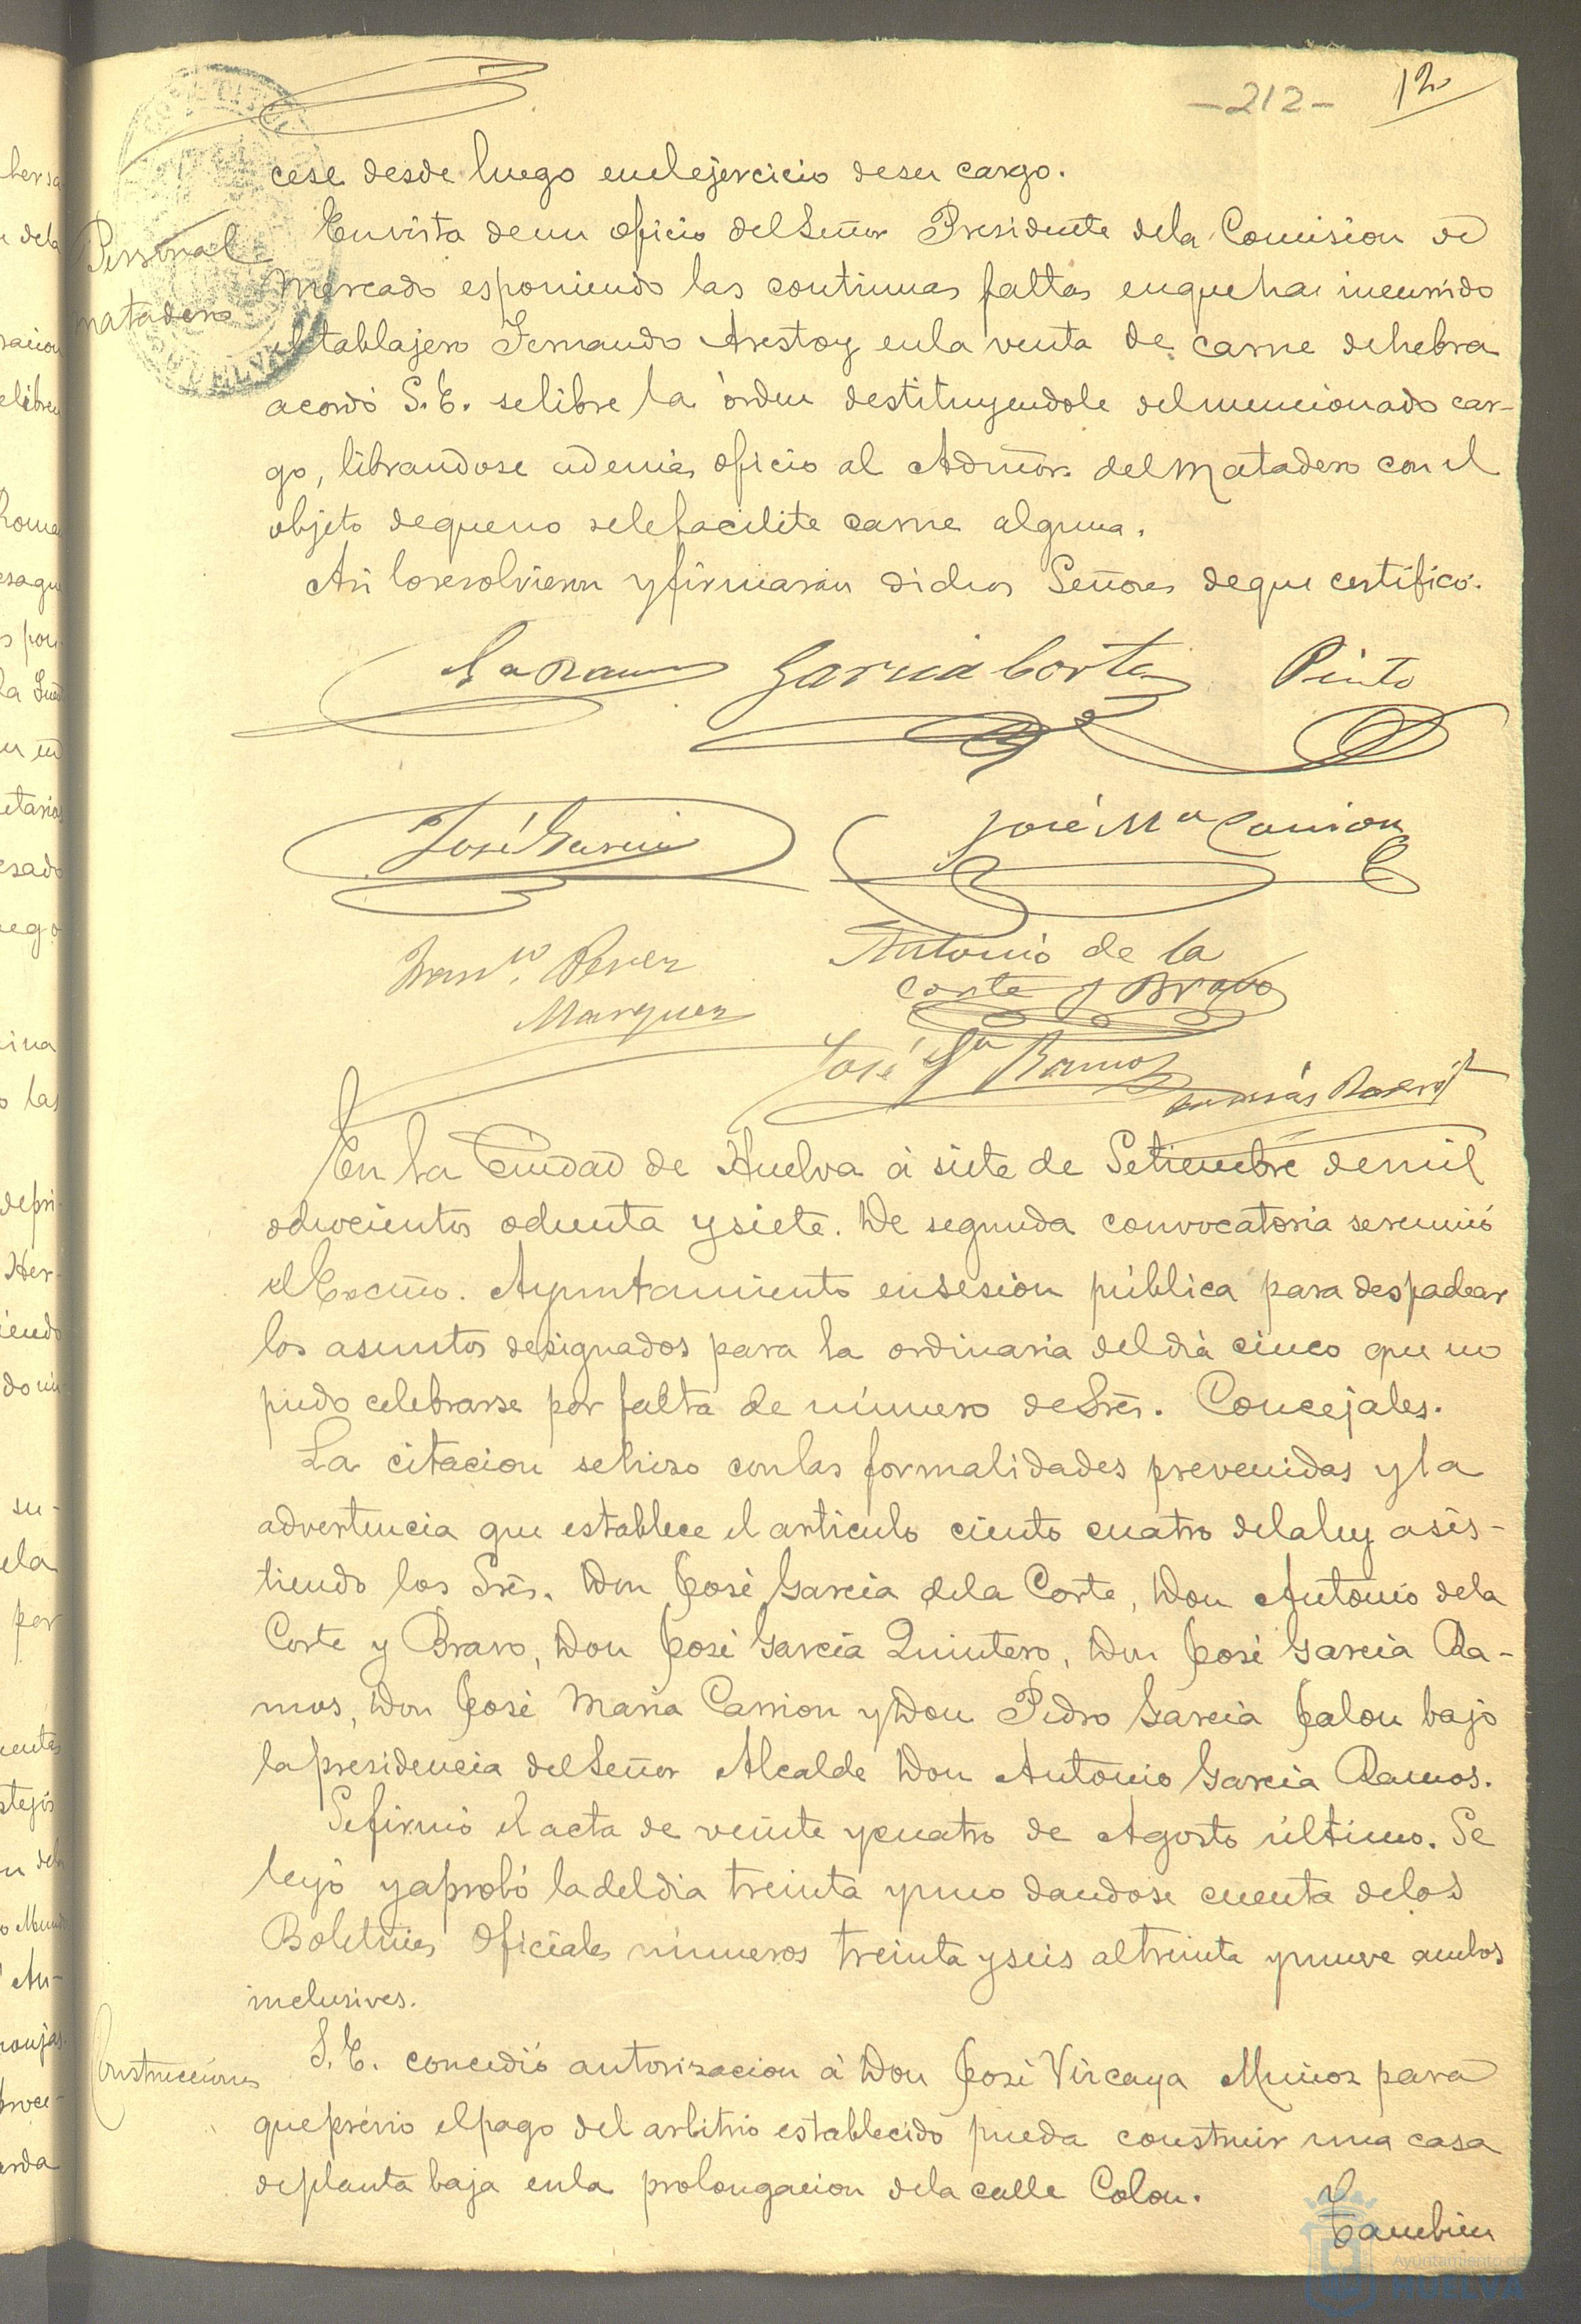 -212- 12
cese desde luego en el ejercicio de su cargo.
Personal
matadero
En vista de un oficio del Señor Presidente de la Comision de
Mercado esponiendo las continuas faltas en que ha incurrido
el tablajero Fernando Arestoy en la venta de carne de hebra
acordó S.E. se libre la órden destituyendole del mencionado car-
go, librandose además oficio al Admor. del Matadero con el
objeto de que no se le facilite carne alguna.
Asi lo resolvieron y firmaran dichos Señores de que certifico.
Garcia Corte Pinto
José Garcia José Mª Carrion
Franco. Perez
Marquez
Antonio de la
Corte y Bravo
José Ga Ramos
Tomás
En la Ciudad de Huelva á siete de Setiembre de mil
ochocientos ochenta y siete. De segunda convocatoria se reunió
el Excmo. Ayuntamiento en sesion pública para despachar
los asuntos designados para la ordinaria del dia cinco que no
pudo celebrarse por falta de número de Sres. Concejales.
La citacion se hizo con las formalidades prevenidas y la
advertencia que establece el articulo ciento cuatro de la ley asis-
tiendo los Sres. Don José Garcia de la Corte, Don Antonio de la
Corte y Bravo, Don José Garcia Quintero, Don José Garcia Ra-
mos, Don José Maria Carrion y Don Pedro Garcia Jalon bajo
la presidencia del Señor Alcalde Don Antonio Garcia Ramos.
Se firmó el acta de veinte y cuatro de Agosto último. Se
leyó y aprobó la del dia treinta y uno dandose cuenta de los
Boletines Oficiales números treinta y seis al treinta y nueve ambos
inclusives.
Construcciones
S.E. concedió autorizacion á Don José Vizcaya Muñoz para
que prévio el pago del arbitrio establecido pueda construir una casa
de planta baja en la prolongacion de la calle Colon.
Tambien
Ayuntamiento de
HUELVA